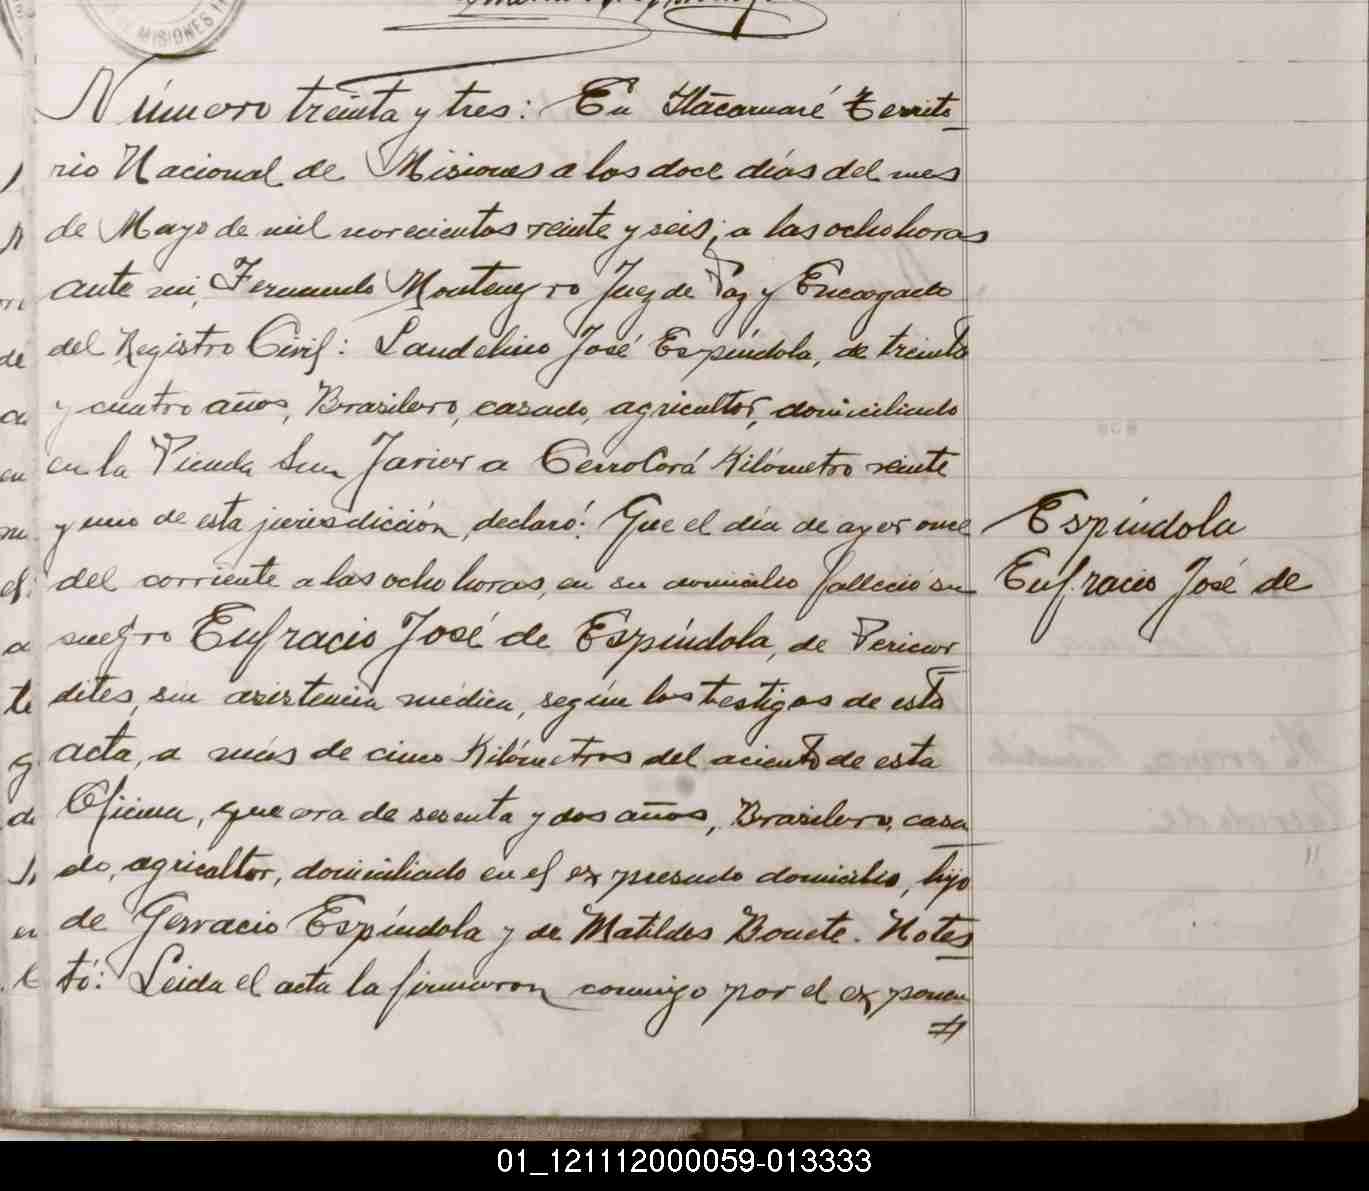 MISIONES
Número treinta y tres: En Itacaruaré Territo
rio Nacional de Misiones a los doce días del mes
de Mayo de mil novecientos veinte y seis; a las ocho horas
ante mi, Fernando Montenegro Juez de Paz y Encargado
del Registro Civil: Laudelino José Espíndola, de treinta
y cuatro años, Brasilero, casado, agricultor, domiciliado
en la Picada San Javier a Cerro Corá Kilómetro veinte
y uno de esta jurisdicción, declaró: Que el día de ayer once
Espíndola
del corriente a las ocho horas, en su domicilio falleció su
Eufracio José de
suegro Eufracio José de Espíndola, de Pericar
dites, sin asistencia médica, según los testigos de esta
acta, a más de cinco Kilómetros del aciento de esta
Oficina, que era de sesenta y dos años, Brasilero, casa
do, agricultor, domiciliado en el expresado domicilio, hijo
de Gervacio Espíndola y de Matildes Bouete. No tes
tó: Leida el acta la firmaron conmigo por el exponen
01_121112000059-013333